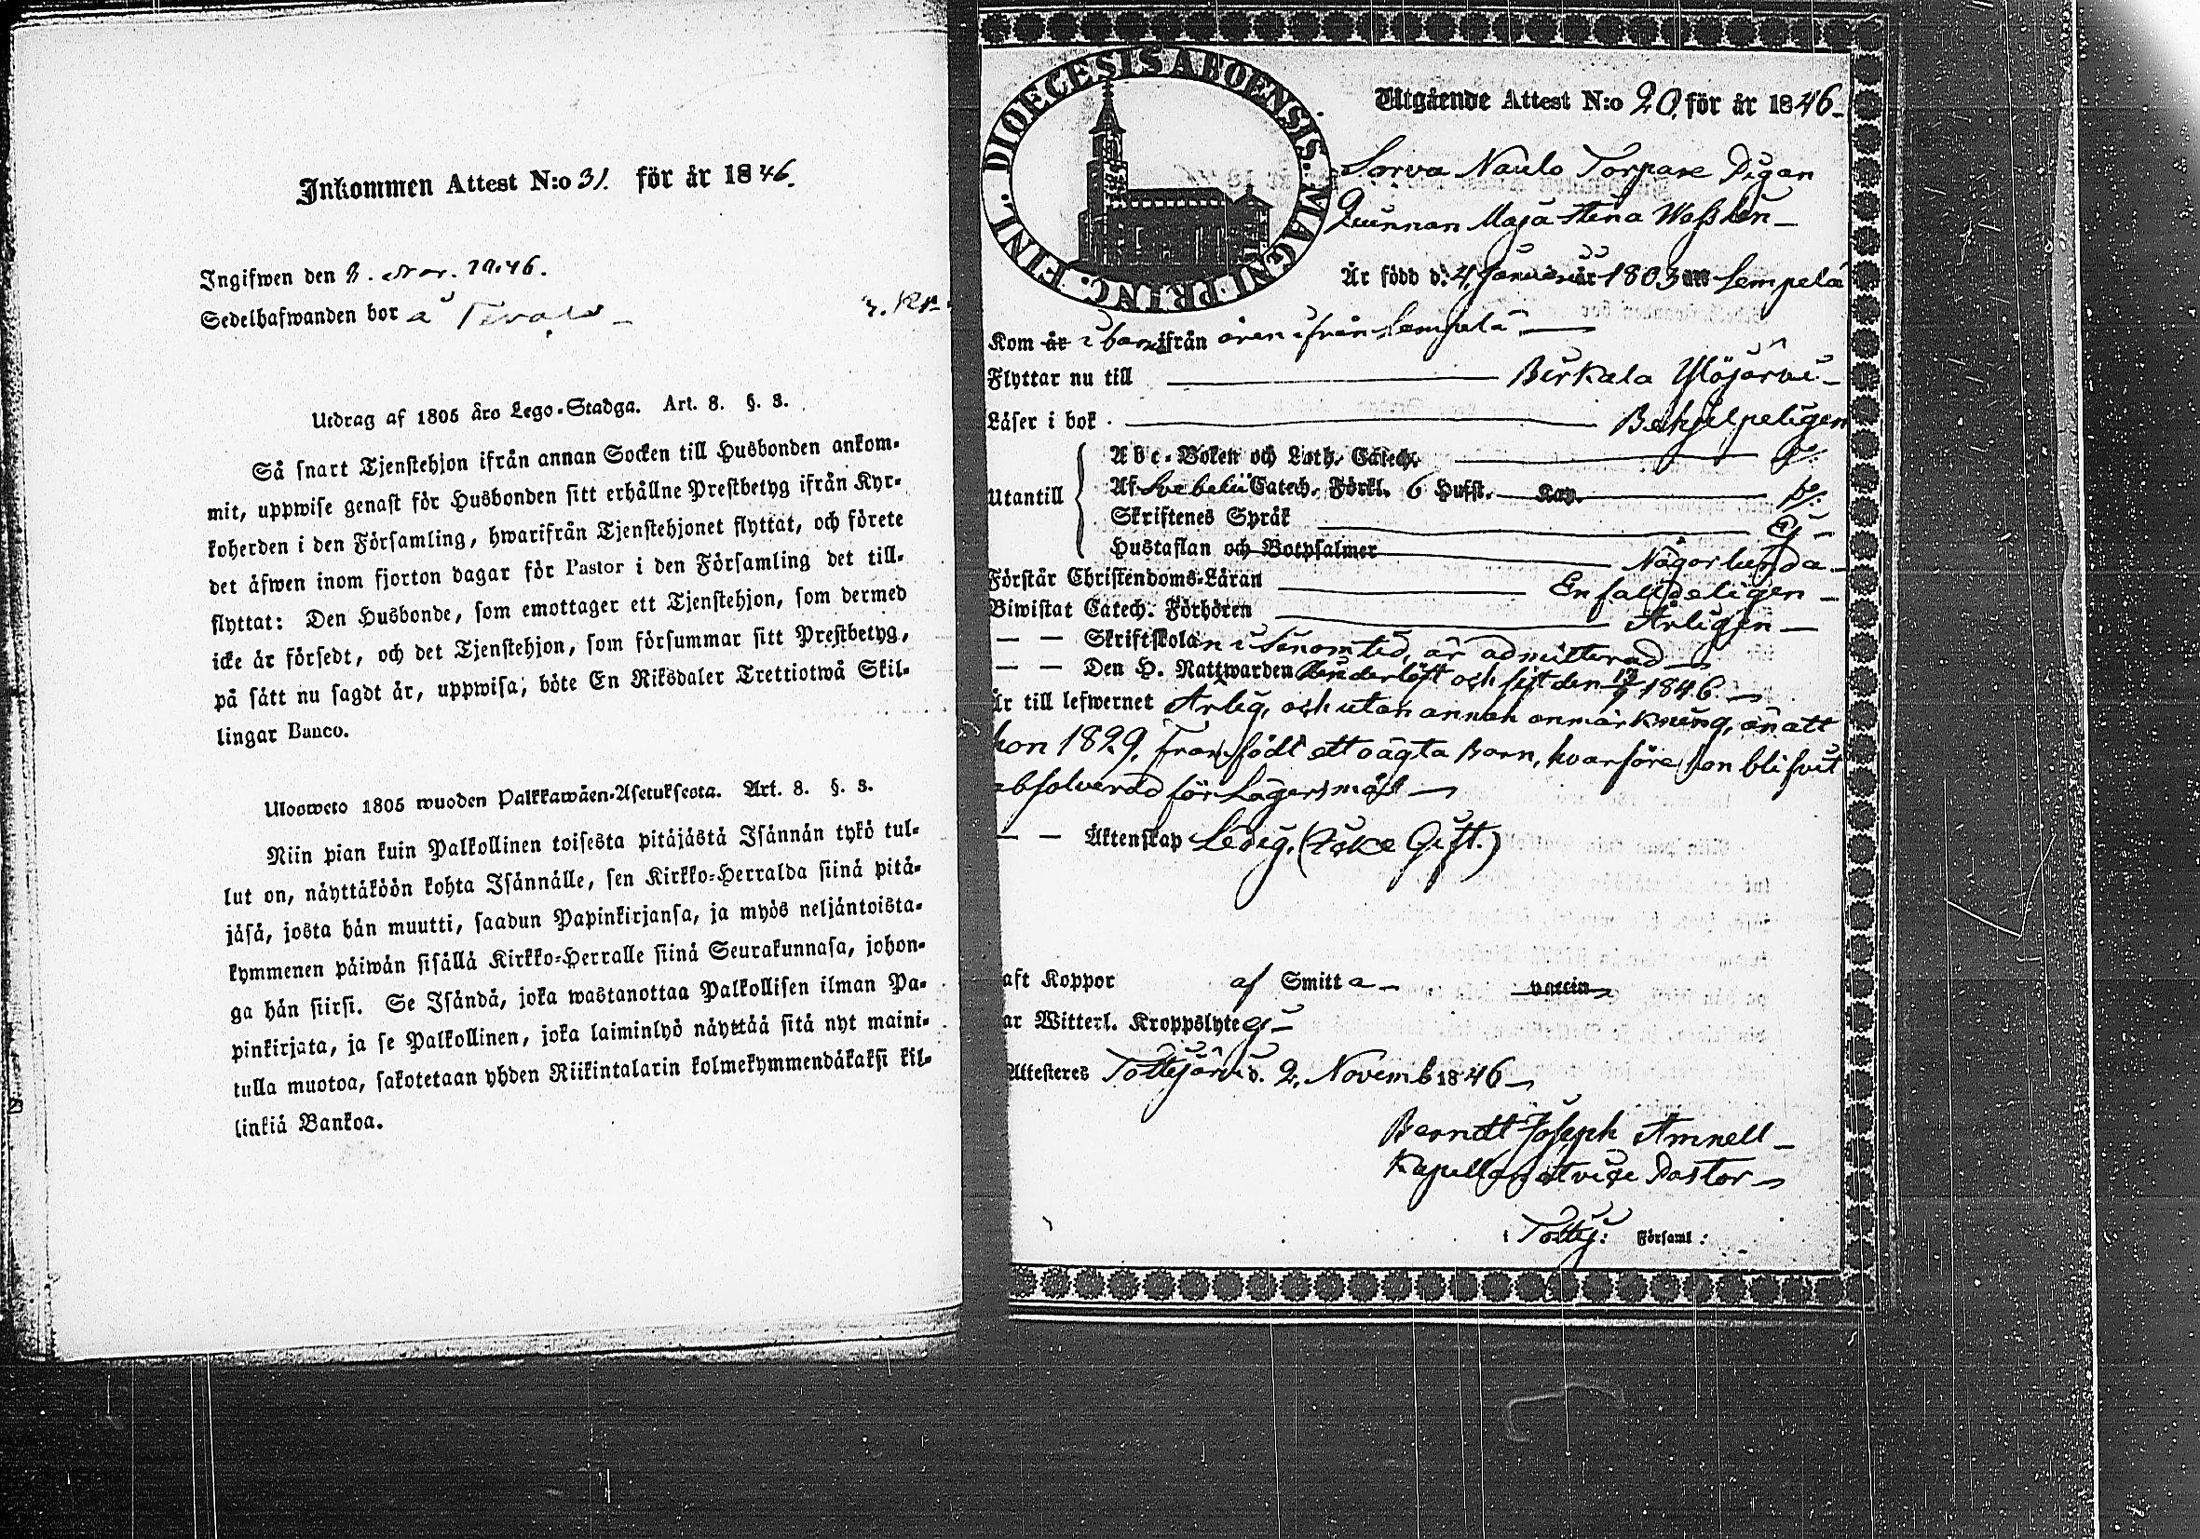 Inkommen Attest N:o 31. för år 1846.
Ingifwen den 8. 1846.
Sedelhafwanden bor å
Utdrag af 1805 års Lego-Stadga. Art. 8. §. 3.
Så snart Tjenstehjon ifrån annan Socken till Husbonden ankom-
mit, uppwise genast för Husbonden sitt erhållne Prestbetyg ifrån Kyr-
koherden i den Församling, hwarifrån Tjenstehjonet flyttat, och förete
det äfwen inom fjorton dagar för Pastor i den Församling det till-
flyttat: Den Husbonde, som emottager ett Tjenstehjon, som dermed
icke är försedt, och det Tjenstehjon, som försummar sitt Prestbetyg,
på sätt nu sagdt är, uppwisa, böte En Riksdaler Trettiotwå Skil-
lingar Banco.
Ulosweto 1805 wuoden Palkkawäen-Asetuksesta. Art. 8. §. 3.
Niin pian kuin Palkollinen toisesta pitäjästä Isännän tykö tul-
lut on, näyttäköön kohta Isännälle, sen Kirkko-Herralda siinä pitä-
jäsä, josta hän muutti, saadun Papinkirjansa, ja myös neljäntoista-
kymmenen päiwän sisällä Kirkko-Herralle siinä Seurakunnasa, johon-
ga hän siirsi. Se Isändä, joka wastanottaa Palkollisen ilman Pa-
pinkirjata, ja se Palkollinen, joka laiminlyö näyttää sitä nyt maini-
tulla muotoa, sakotetaan yhden Riikintalarin kolmekymmendäkaksi kil-
linkiä Bankoa.
FINL. DIOECESIS ABOENSIS. MAGNI PRINC.
Utgående Attest N:o 20. för år 1846.
Sorva Naulo Torpare Pigan
Qvinnan Maja Stina
Är född d. 4. Januari år 1803 uti Lempelä
Kom år ifrån ifrån Lempelä
Flyttar nu till Birkala Ylöjärvi
Läser i bok Behjelpeligen
Utantill
Abc-Boken och Luth. Catech.
Af Svebelii Catech. Förkl. 6 Hufst. Kap.
Skriftenes Språk Ej
Hustaflan och Botpsalmer
Någorlunda
Förstår Christendoms-Läran Enfalldeligen
Biwistat Catech. Förhören Årligen
— — Skriftskolan i sinom tid, är admitterad
— — Den H. Nattwarden och sist den 1846
Är till lefwernet Ärlig, och utan annan anmärkning, än att
hon 1829. Framfödt ett oägta Barn, hvarföre hon blifvit
absolverad för Lägersmål
— — Äktenskap Ledig. (Icke Gift.)
aft Koppor af Smitta vaccin
ar Witterl. Kroppslyte Ej
Attesteras Tottijärvi d. 2. Novemb 1846
Berndt Joseph Amnell
Kapellan Pastor
i Tottij: Församl: